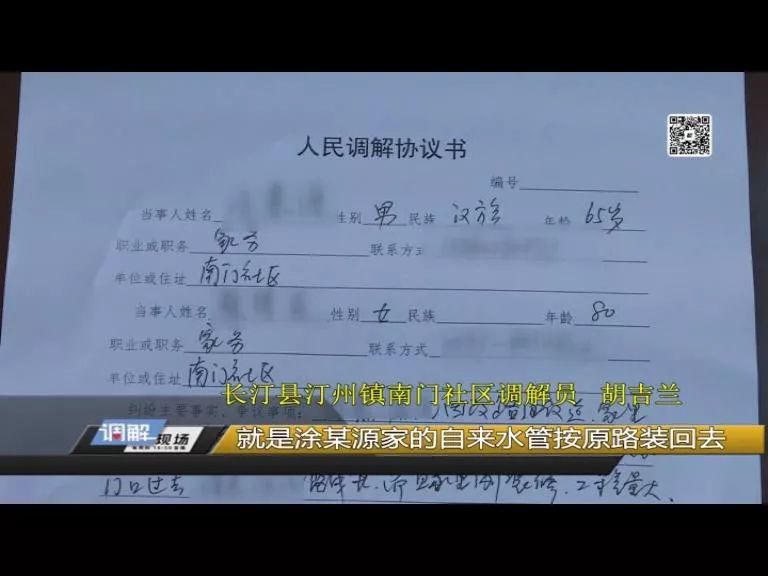 人民调解协议书
编号
当事人姓名 性别 男 民族 汉族 年龄 65岁
职业或职务 家务 联系方式
单位或住址 南门社区
当事人姓名 性别 女 民族 年龄 80
职业或职务 家务 联系方式
单位或住址 南门社区
长汀县汀州镇南门社区调解员 胡吉兰
纠纷主要事实、争议事项：
调解现场
就是涂某源家的自来水管按原路装回去
门口过去 工程量大、